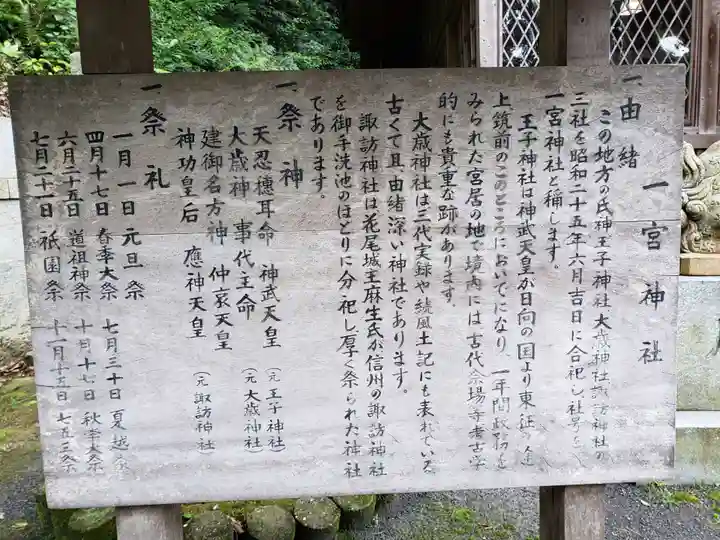 一宮神社
一、由緒
この地方の氏神王子神社大歳神社諏訪神社の
三社を昭和二十五年六月吉日に合祀し社号を
一宮神社と称します。
王子神社は神武天皇が日向の国より東征の途
上筑前のこのところにおいてになり、一年間政務を
みられた宮居の地で境内には古代祭場等考古学
的にも貴重な跡があります。
大歳神社は三代実録や続風土記にも表れている
古くて且、由緒深い神社であります。
諏訪神社は花尾城主麻生氏が信州の諏訪神社
を御手洗池のほとりに分祀し厚く祭られた神社
であります。
一、祭神
天忍穂耳命 神武天皇 (元 王子神社)
大歳神 事代主命 (元 大歳神社)
建御名方神 仲哀天皇
神功皇后 應神天皇 (元 諏訪神社)
一、祭礼
一月一日 元旦祭 七月三十日 夏越祭
四月十七日 春季大祭 十月十七日 秋季大祭
六月二十五日 道祖神祭 十一月十五日 七五三祭
七月二十一日 祇園祭